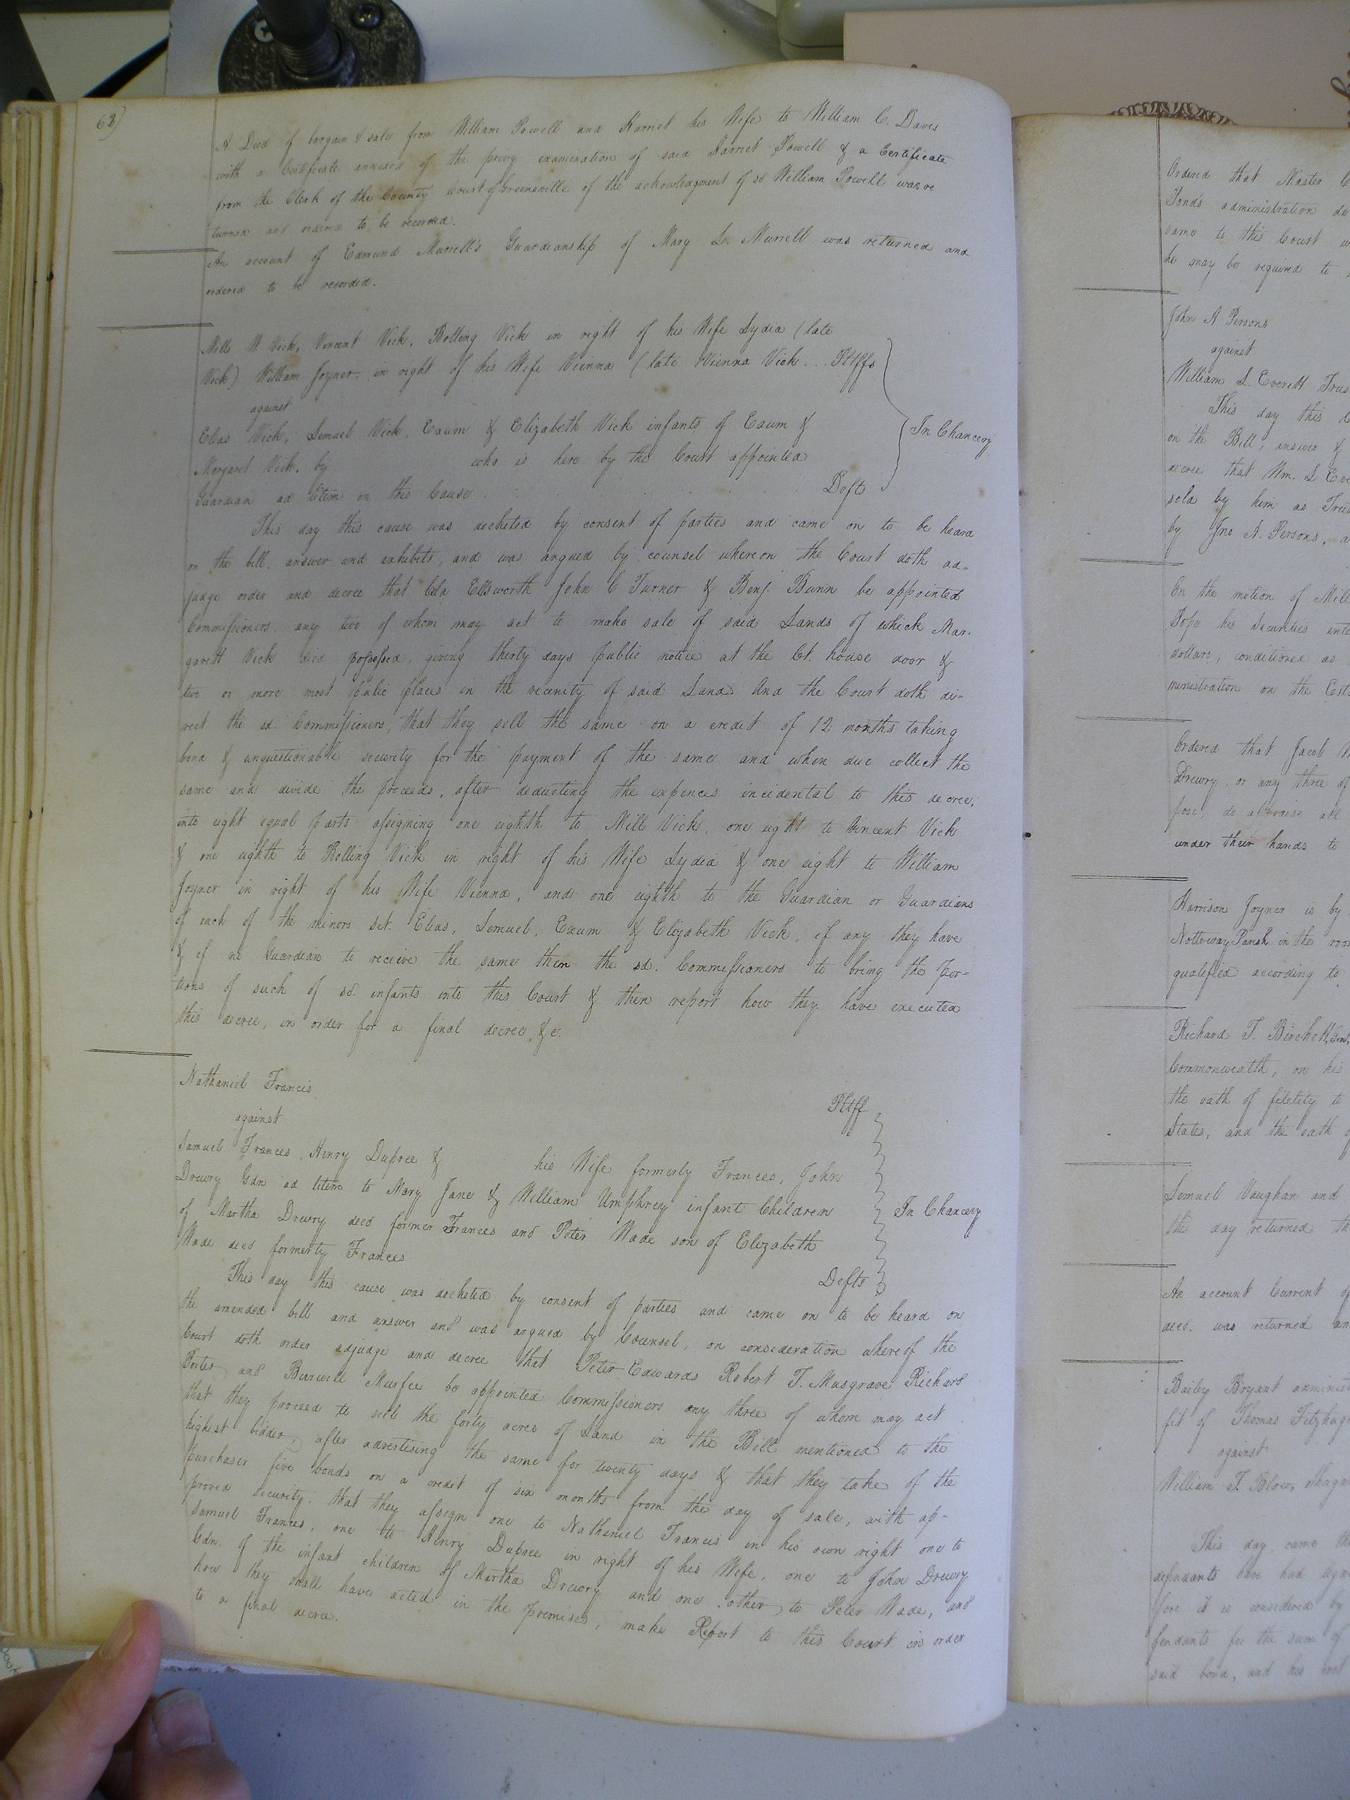 62)
A Deed of bargain & sale from William Powell and Harriet his Wife to William C. Daves
with a Certificate annexed of the privy examination of said Harriet Powell & a Certificate
from the Clerk of the County Court of Greensville of the acknowledgment of sd William Powell was re
turned and ordered to be recorded.
An account of Edmund Murrell's Guardianship of Mary Murrell was returned and
ordered to be recorded.
Mills W Vick, Vincent Vick, Bolling Vick in right of his Wife Lydia (late
Vick) William Joyner in right of his Wife Vienna (late Vienna Vick ... Pltffs
against
In Chancery
Elias Vick, Lemuel Vick, Exum & Elizabeth Vick infants of Exum &
Margaret Vick, by who is here by the Court appointed
Guardian ad litem in this Cause Defts
This day this cause was docketed by consent of parties and came on to be heard
on the bill, answer and exhibits, and was argued by counsel whereon the Court doth ad-
judge order and decree that Ellsworth John C Turner & Benj. Bunn be appointed
Commissioners any two of whom may act to make sale of said Lands of which Mar-
garett Vick died possessed, giving thirty days public notice at the Ct. house door &
two or more most public places in the vicinity of said Land And the Court doth di-
rect the sd. Commissioners, that they sell the same on a credit of 12 months taking
bond & unquestionable security for the payment of the same and when due collect the
same and divide the proceeds, after deducting the expences incedental to this decree,
into eight equal parts assigning one eighth to Mill Vick, one eight to Vincent Vick
& one eighth to Bolling Vick in right of his Wife Lydia & one eight to William
Joyner in right of his Wife Vienna, and one eighth to the Guardian or Guardians
of each of the minors Elias, Lemuel, Exum & Elizabeth Vick, if any they have
& if no Guardian to receive the same then the sd. Commissioners to bring the Por-
tions of such of sd infants into this Court & then report how they have executed
this decree, in order for a final decree &c
Nathaniel Francis Pltff
against
Samuel Frances, Henry Dupree & his Wife formerly Frances, John
Drewry Gdn ad litem to Mary Jane & William Umphrey infant Children
In Chancery
of Martha Drewry decd former Frances and Peter Wade son of Elizabeth
Wade decd formerly Frances Defts
This day this cause was docketed by consent of parties and came on to be heard on
the amended bill and answer and was argued by Counsel, on consideration whereof the
Court doth order adjudge and decree that Peter Edwards Robert T. Musgrave Richard
Porter and Burwell Murfee be appointed Commissioners any three of whom may act
that they proceed to sell the forty acres of Land in the Bill mentioned to the
highest bidder, after advertising the same for twenty days & that they take of the
purchaser five bonds on a credit of six months from the day of sale, with ap-
proved security. that they assign one to Nathaniel Francis in his own right one to
Samuel Frances, one to Henry Dupree in right of his Wife, one to John Drewry
Gdn. of the infant children of Martha Drewry and one other to Peter Wade, and
how they shall have acted in the premises, make Report to this Court in order
to a final decree.
Ordered that Master
Bonds administration
same to this Court
he may be required to
John A Persons
against
William L. Everett Trus
This day this
on the Bill, answer &
decree that Wm. L
sold by him as Trus
by Jno A. Persons,
On the motion of
his securities
dollars, conditioned as
ministration on the
Ordered that Jacob
Drewry or any three of
under their hands to
Harrison Joyner is by
Nottoway Parish in the
qualified according to
Richard T. Birchett
Commonwealth, on his
the oath of fidelity to
States, and the oath
Samuel Vaughan and
the day returned
An account Current of
decd. was returned
Bailey Bryant
fit of Thomas Fitzhugh
against
William T. Blow,
This day came
defendants
fore it is considered by
fendants for the sum of
said bond, and his